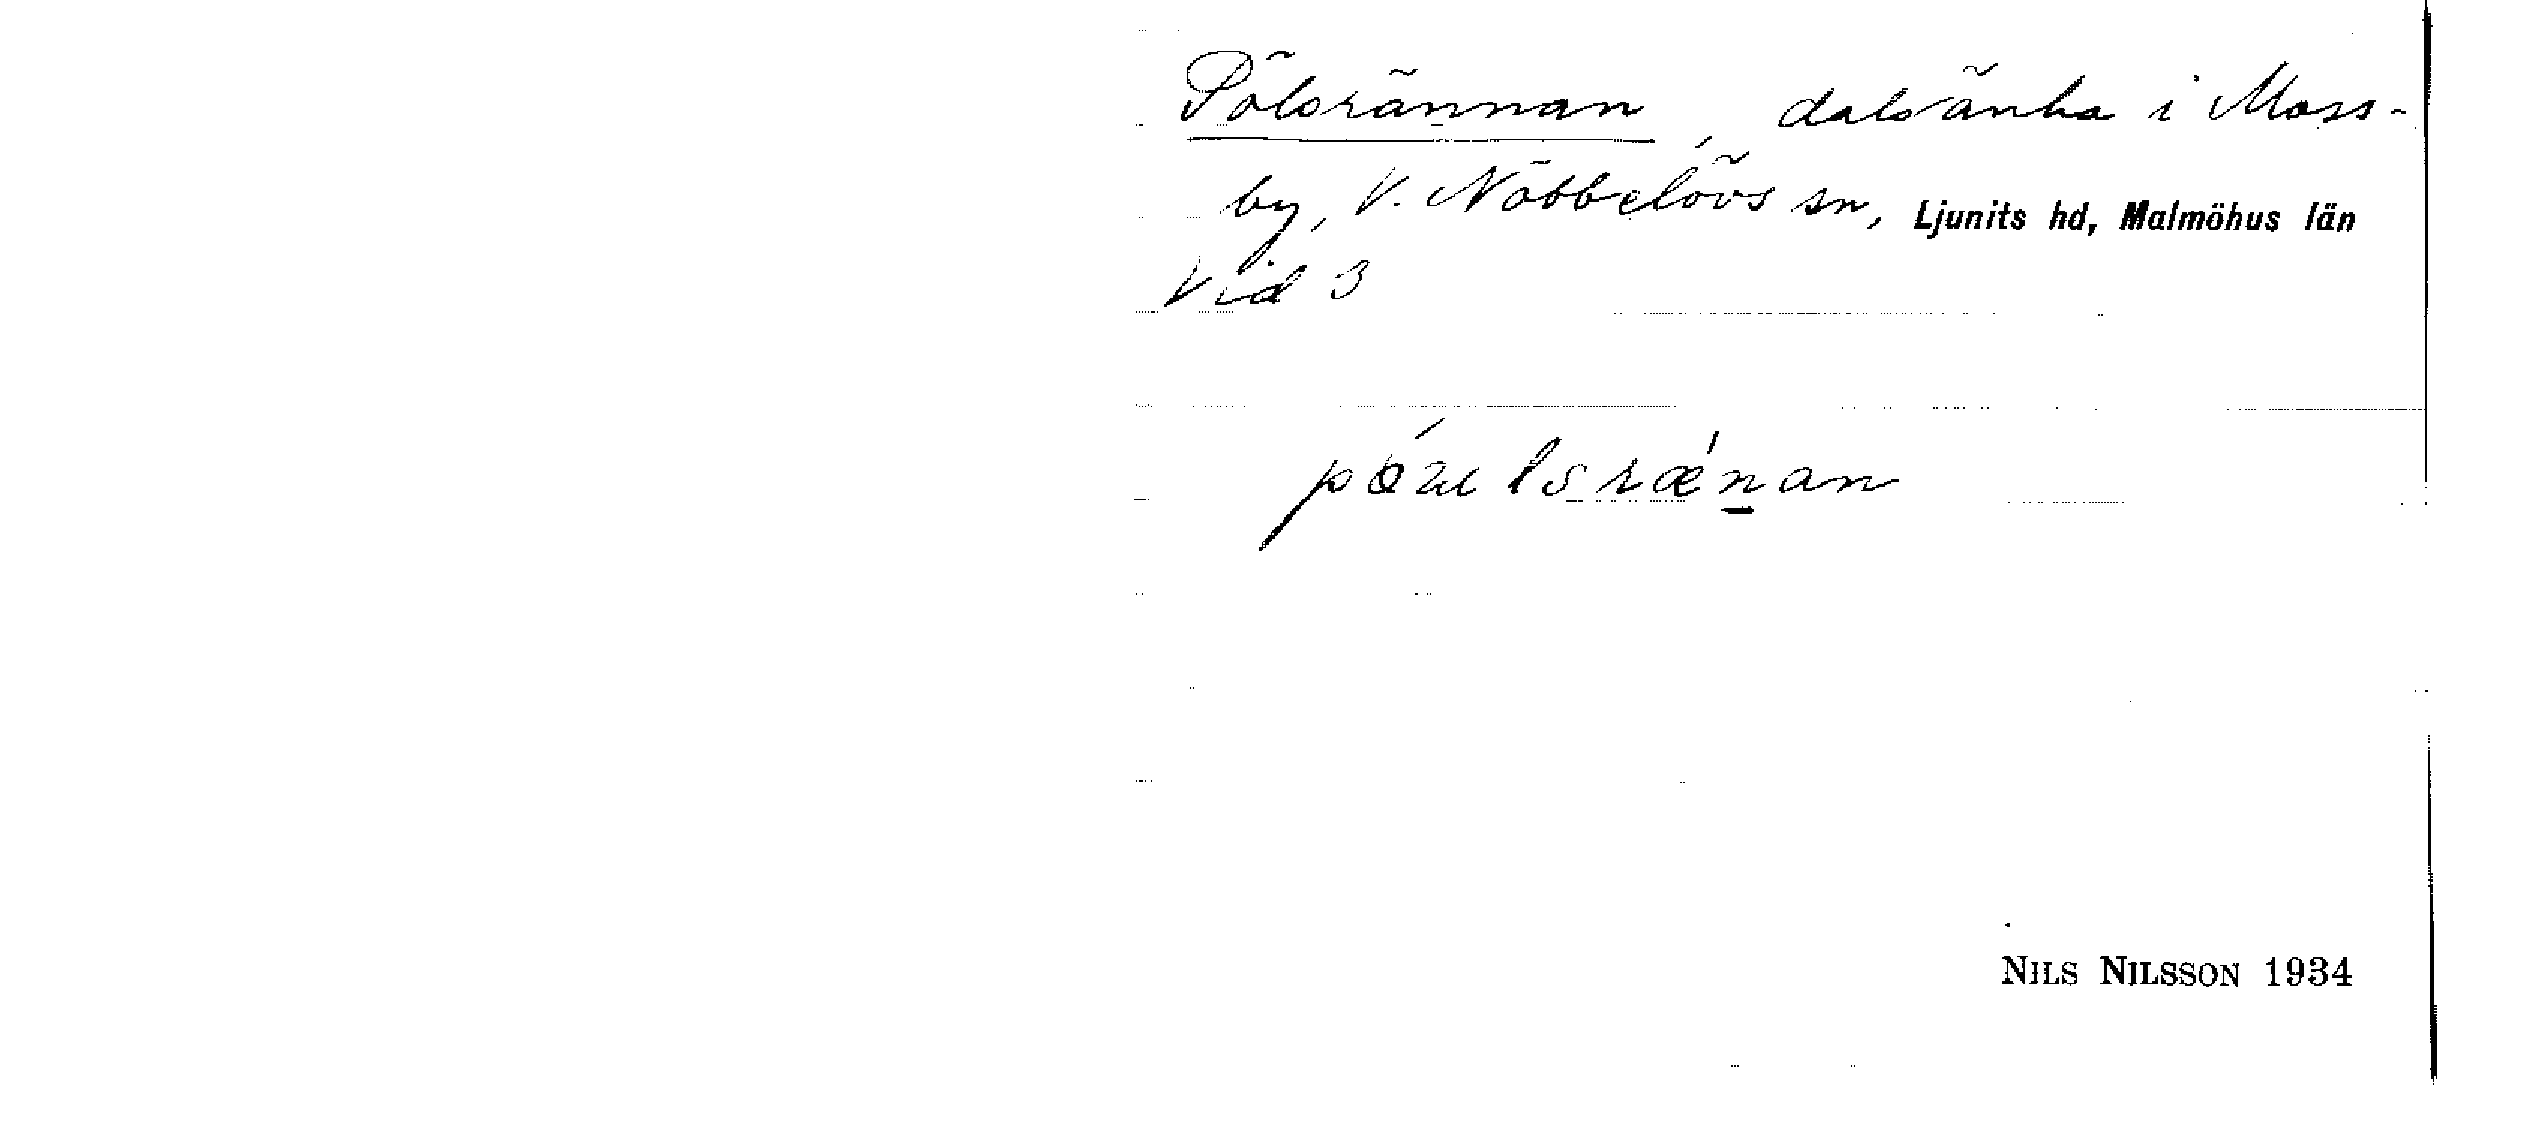 Pölsrännan, dalsänka i Moss-
by, V. Nöbbelövs sn, Ljunits hd, Malmöhus län
Vid 3
NILS NILSSON 1934